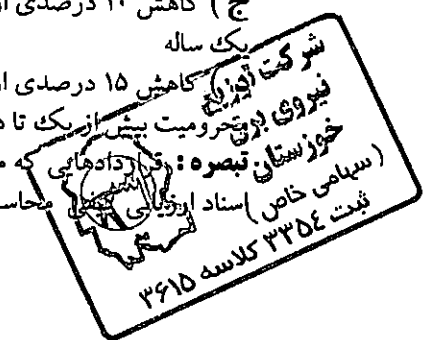 ج ) کاهش ۱۰ درصدی از
یک ساله
د ) کاهش ۱۵ درصدی از
محرومیت بیش از یک تا د
تبصره : قراردادهایی که م
اسناد ارزیابی کیفی محاسب
شرکت توزیع
نیروی برق
خوزستان
(سهامی خاص)
ثبت ۳۳۵٤ کلاسه ۳۶۱۵